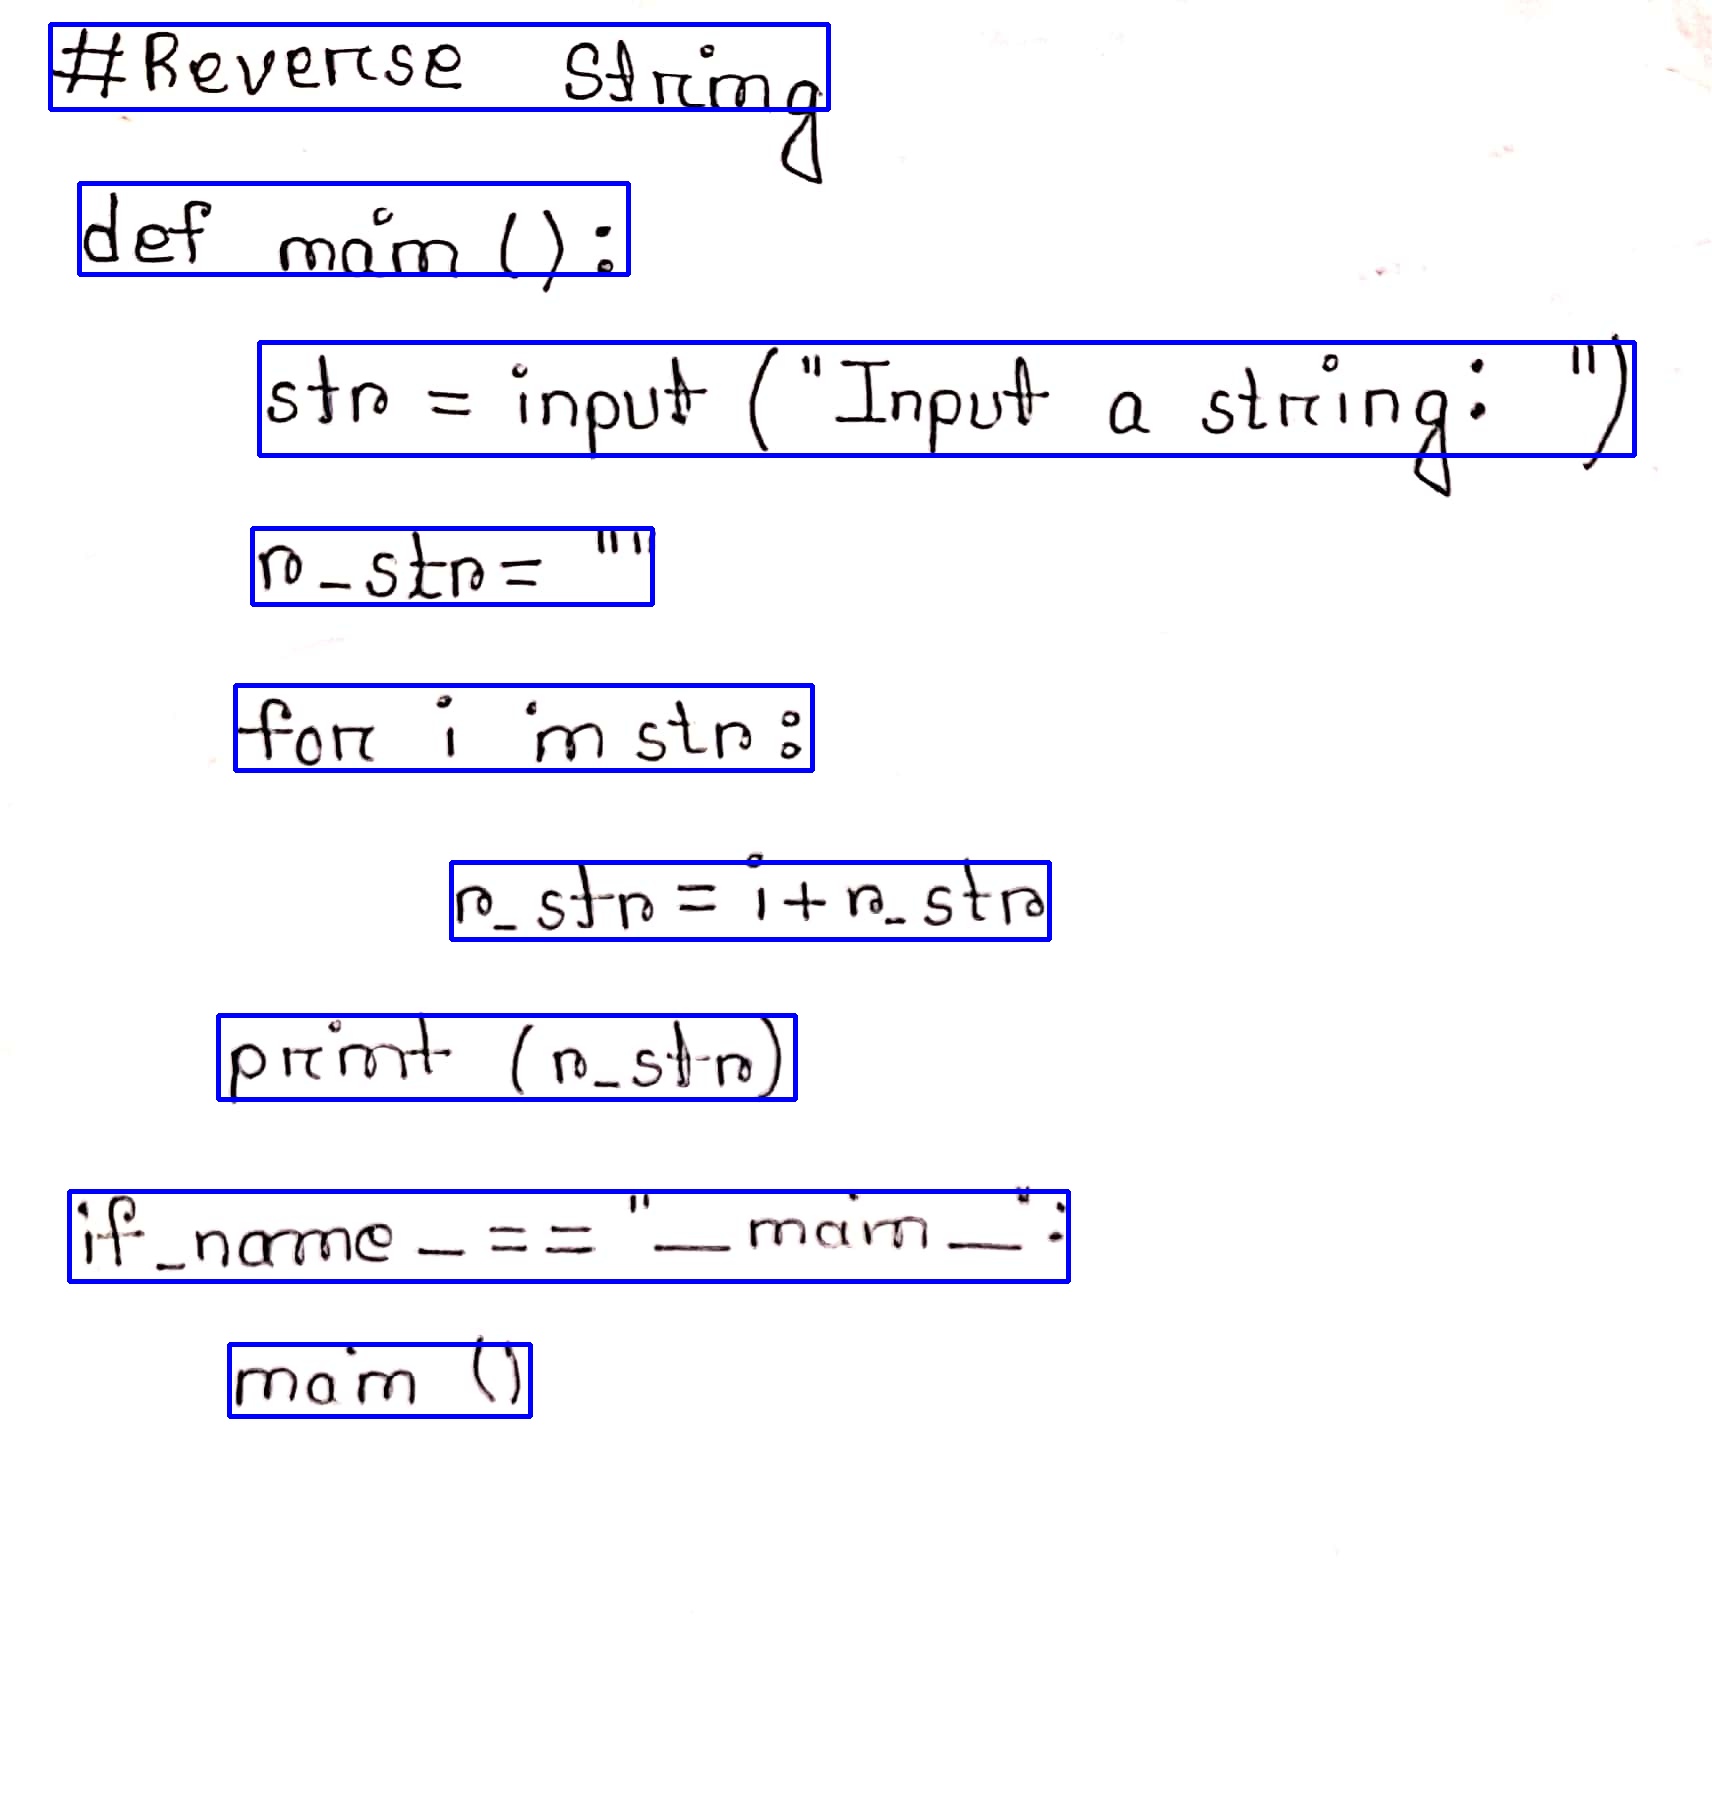 #Reverse String
def main ():
str = input ("Input a string: ")
r_str= ""
for i in str:
r_str = i+r_str
print (r_str)
if _name_ == "__main__":
main ()